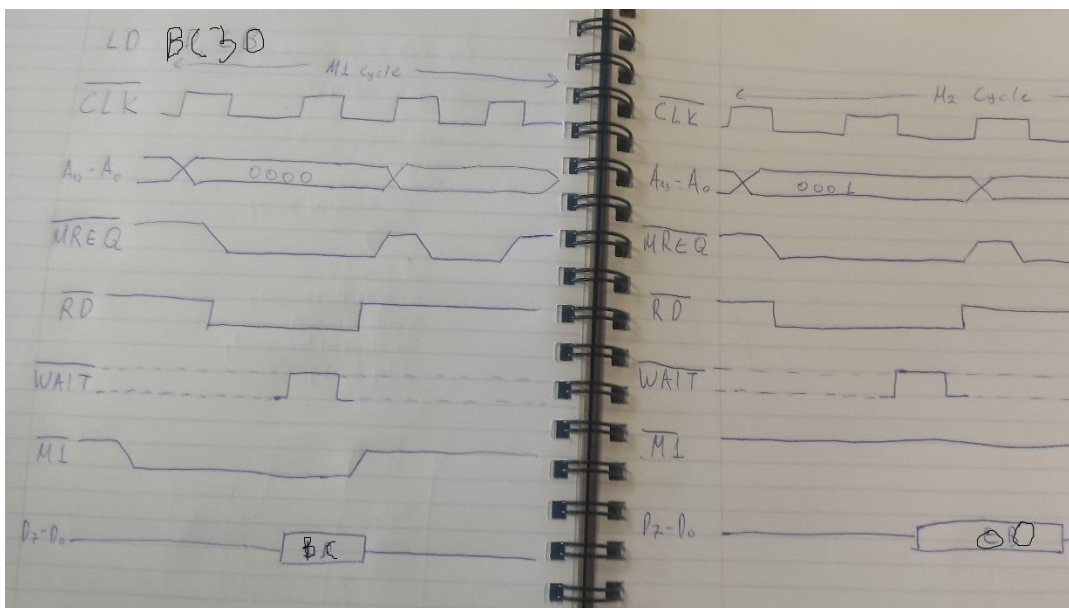 LD BC30
M1 Cycle
CLK
A15-A0 0000
MREQ
RD
WAIT
M1
D7-D0 BC
M2 Cycle
CLK
A15-A0 0001
MREQ
RD
WAIT
M1
D7-D0